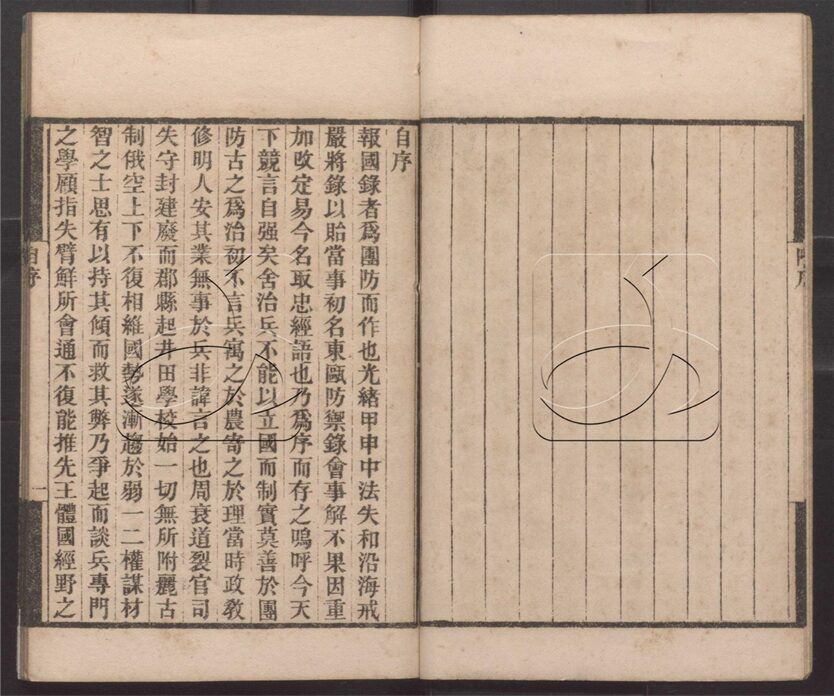 自序
報國錄者爲團防而作也光緒甲申中法失和沿海戒
嚴將錄以貽當事初名東甌防禦錄會事解不果因重
加改定易今名取忠經語也乃爲序而存之嗚呼今天
下競言自强矣舍治兵不能以立國而制實莫善於團
防古之爲治初不言兵寓之於農寄之於理當時政敎
修明人安其業無事於兵非諱言之也周衰道裂官司
失守封建廢而郡縣起井田學校始一切無所附麗古
制俄空上下不復相維國勢遂漸趨於弱一二權謀材
智之士思有以持其傾而救其弊乃爭起而談兵專門
之學顧指失臂鮮所會通不復能推先王體國經野之
自序
一